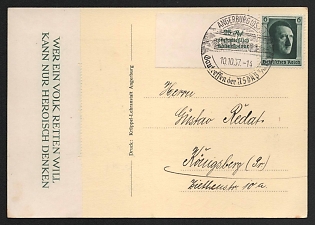 WER EIN VOLK RETTEN WILL
KANN NUR HEROISCH DENKEN
Druck: Krüppel-Lehranstalt Angerburg
ANGERBURG
10.10.37.-14
der NSDAP
6
6
Deutsches Reich
Herrn
Gustav Redat.
Königsberg (Pr)
Ziethenstr 10 a.